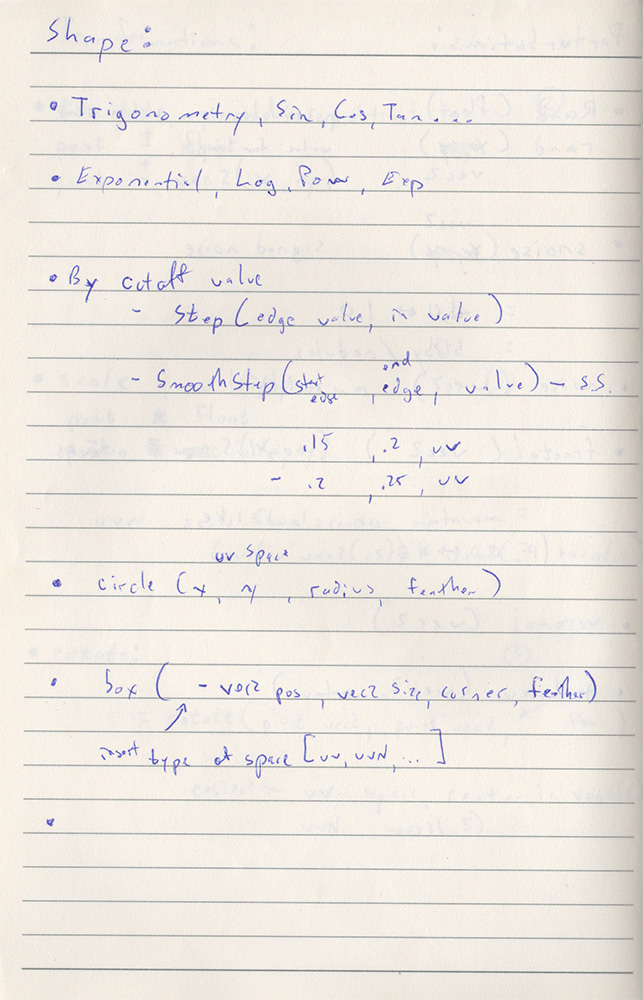 Shape:
• Trigonometry, Sin, Cos, Tan...
• Exponential, Log, Pow, Exp
• By cutoff value
- Step (edge value, in value)
- SmoothStep (start edge, end edge, value) - S.S.
.15, .2, uv
- .2, .25, uv
uv space
• circle (x, y, radius, feather)
• box ( - vec2 pos, vec2 size, corner, feather)
insert type of space [uv, uvN, ...]
•